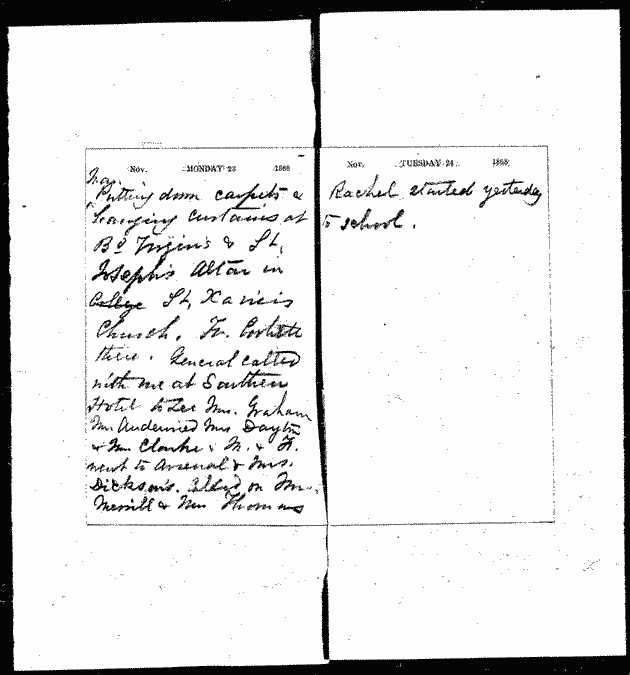 Nov. MONDAY 23 1868
Putting down carpets &
hanging curtains at
Bd Virgin's & St.
Joseph's Altar in
College St. Xavier's
Church. Fr. Corbett
there. General called
with me at Southern
Hotel to see Mrs. Graham
Mrs. Mrs Dayton
& Mrs. Clarke. M. & Fr.
went to Arsenal & Mrs.
Dickson's. Called on Mrs.
Merrill & Mrs Thomas
Nov. TUESDAY 24 1868
Rachel started yesterday
to school.